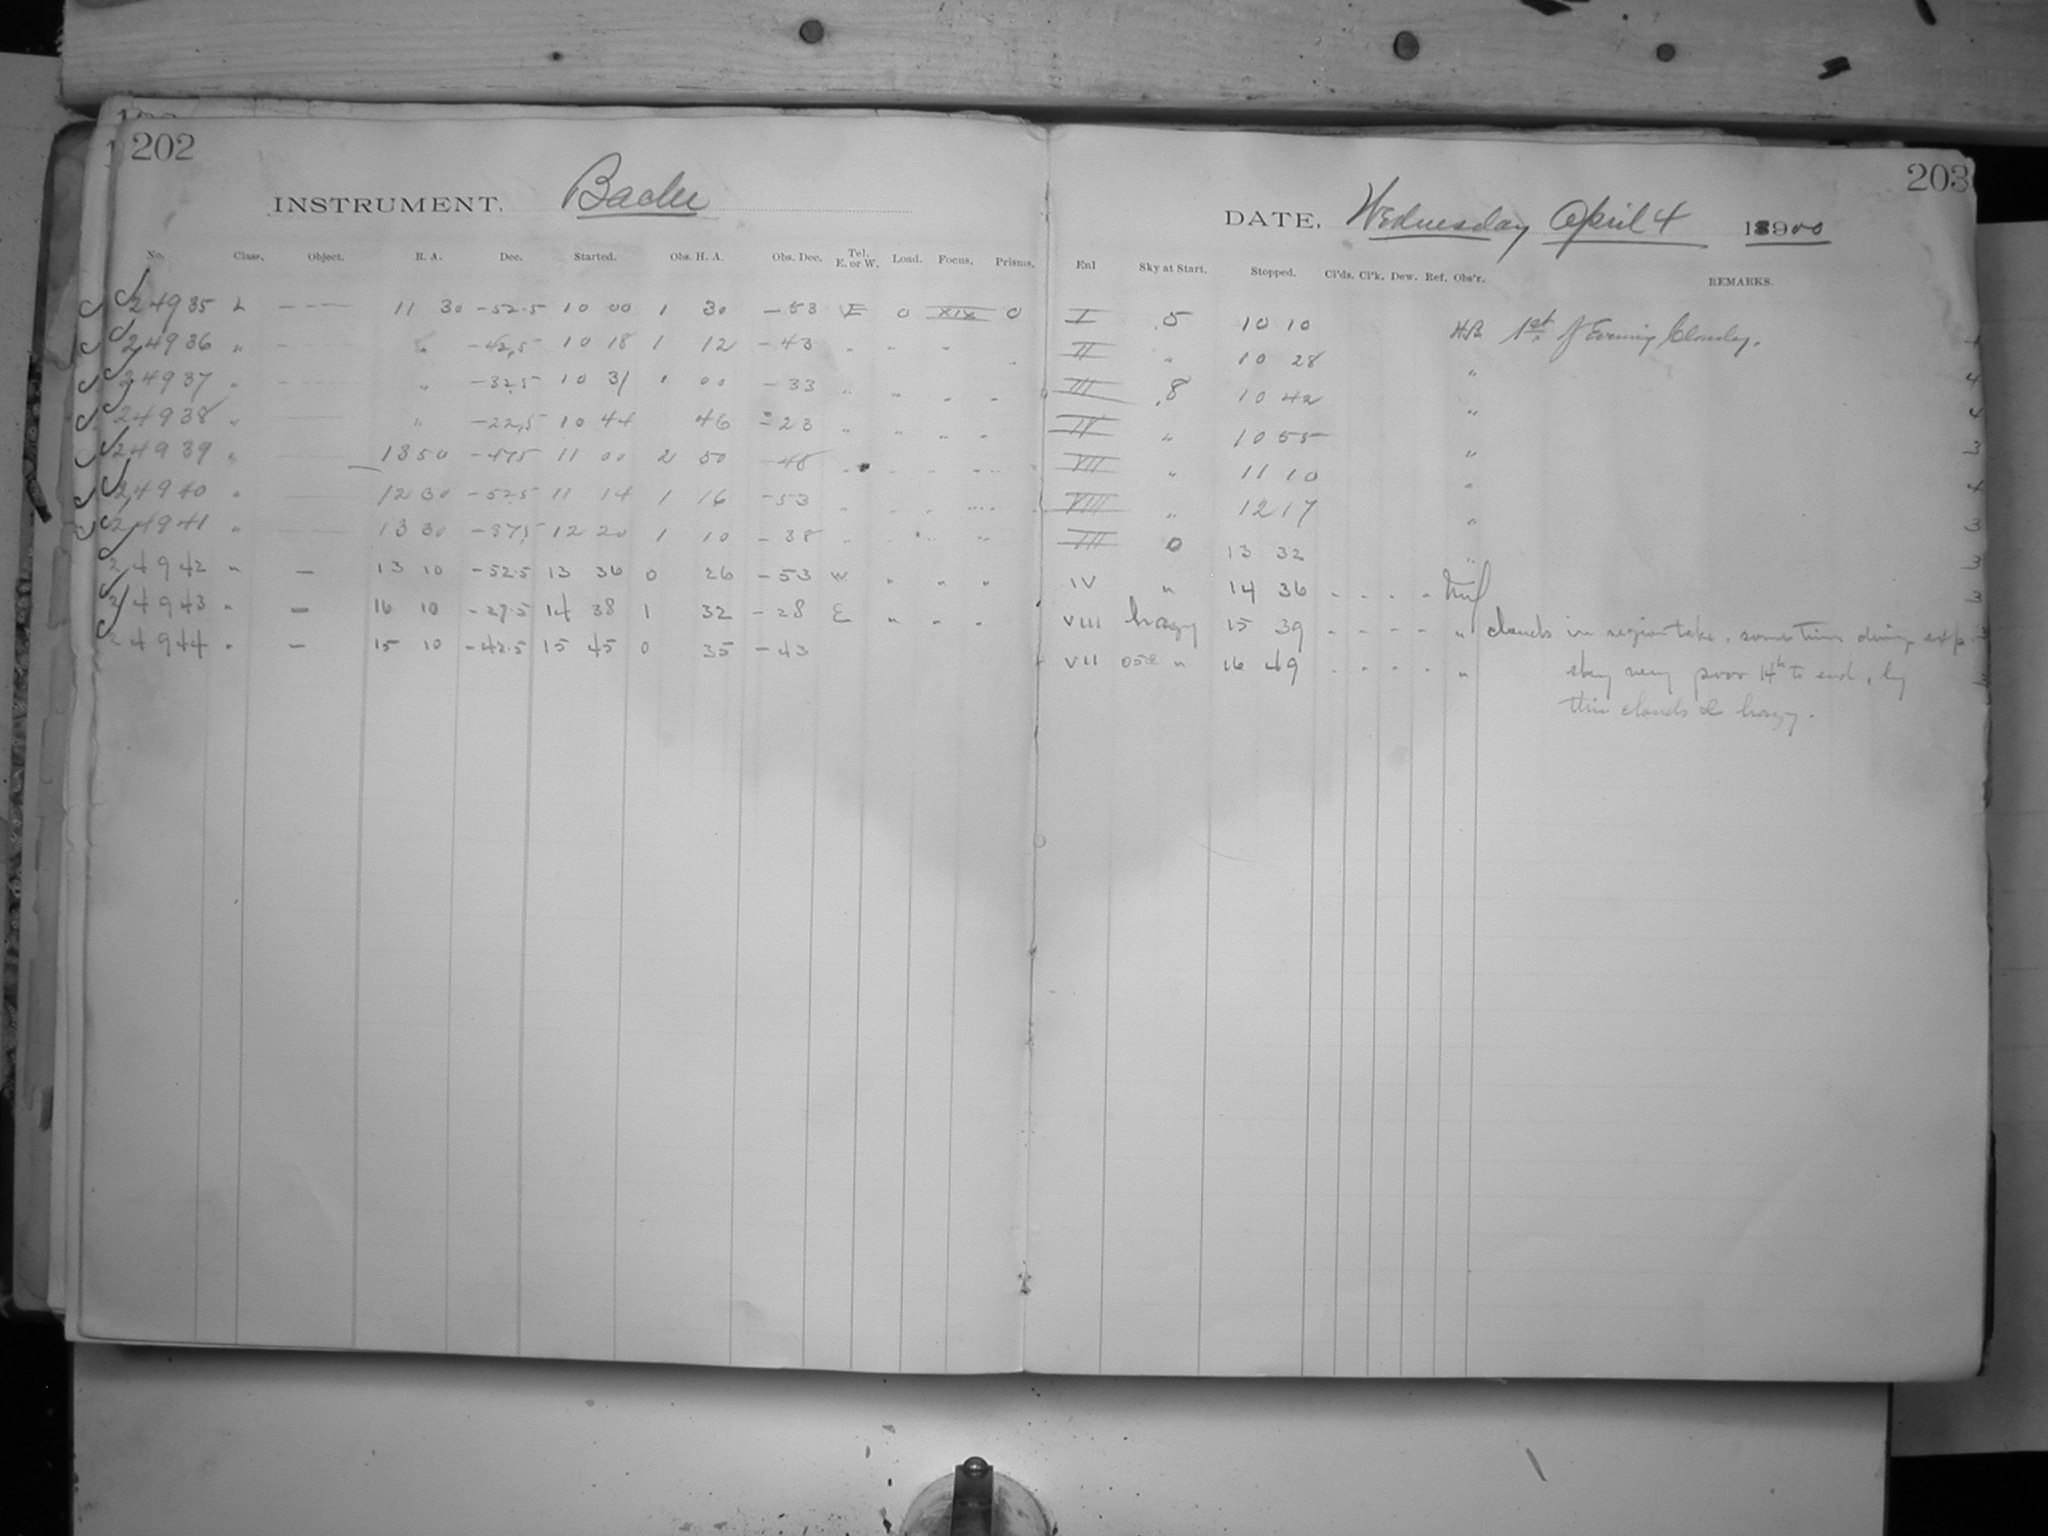 202
INSTRUMENT. Bache
No. Class. Object. R. A. Dec. Started. Obs. H. A. Obs. Dec. Tel. E. or W. Load. Focus. Prisms.
24935 L — 11 30 -52.5 10 00 1 30 -53 E 0 XIX 0
24936 " — " -42.5 10 18 1 12 -43 " " " "
24937 " — " -32.5 10 31 1 00 -33 " " " "
24938 " — " -22.5 10 44 46 -23 " " " "
24939 " — 1350 -47.5 11 00 2 50 -48 " " " "
24940 " — 12 30 -52.5 11 14 1 16 -53 " " " "
24941 " — 13 30 -37.5 12 20 1 10 -38 " " " "
24942 " — 13 10 -52.5 13 36 0 26 -53 W " " "
24943 " — 16 10 -27.5 14 38 1 32 -28 E " " "
24944 " — 15 10 -42.5 15 45 0 35 -43
203
DATE, Wednesday April 4 1900
Enl Sky at Start. Stopped. Cl'ds. Cl'k. Dew. Ref. Obs'r. REMARKS.
I .5 10 10 H.B. 1st of Evening Cloudy.
II " 10 28 " 4
III .8 10 42 " 4
IV " 10 55 " 4
VII " 11 10 " 3
VIII " 12 17 " 4
III 0 13 32 " 3
IV " 14 36 - - - - 3
VIII hazy 15 39 - - - - " clouds in region take. sometime during exp.
VII " 16 49 - - - - " sky very poor 14h to end, by
thin clouds & hazy.